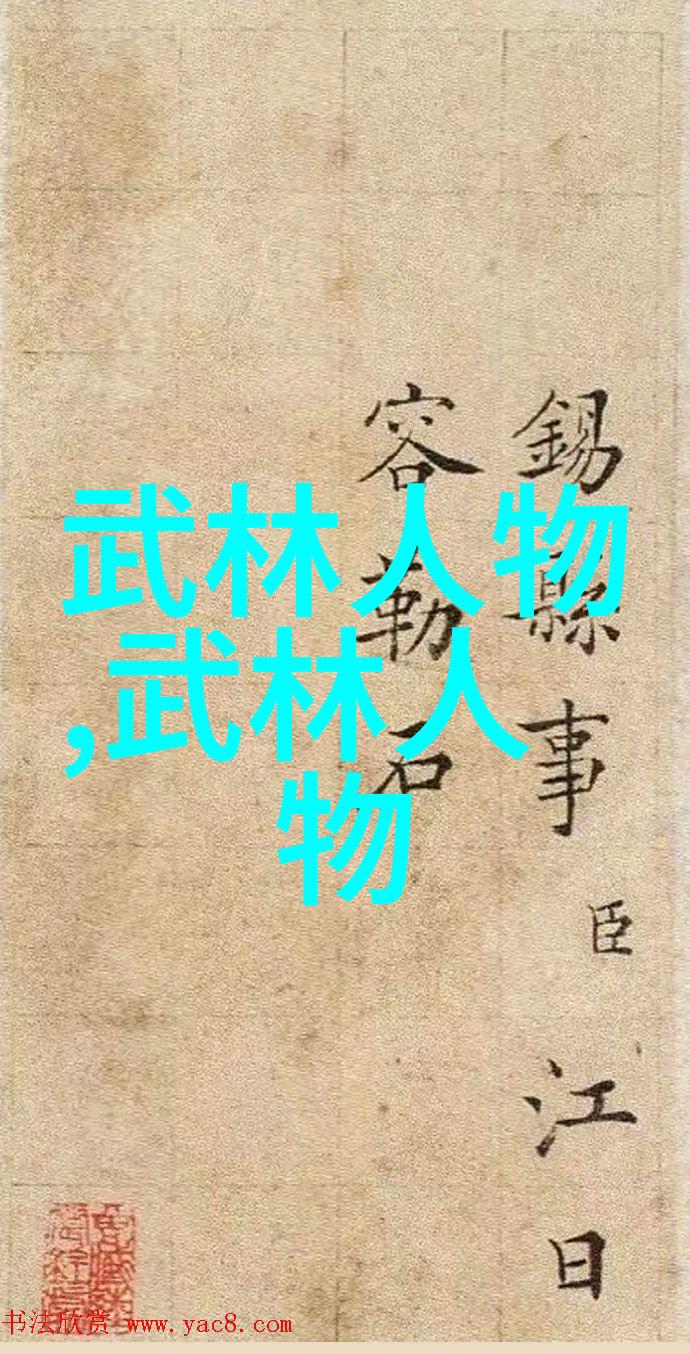 錫縣事臣江日
容勒石
武林人物
,武林人
物
书法欣赏 www.yac8.com